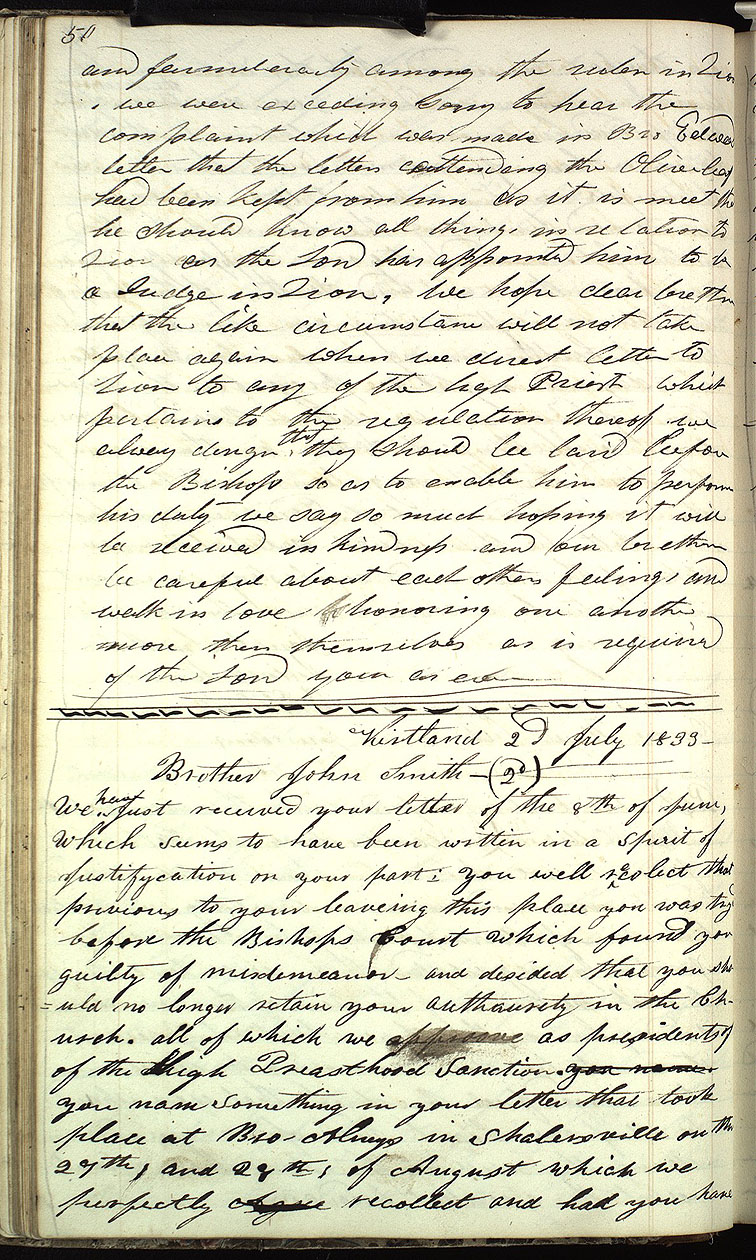 50
and among the in Zion
, we were exceding Sorry to hear the
complaint which was made in Bro Edwards
letter that the letters attending the Olive leaf
had been kept from him as it is meet that
he should know all things in relation to
Zion as the Lord has appointed him to be
a Judge in Zion, We hope dear brethren
that the like circumstance will not take
place again when we direct letter to
Zion to any of the high Priest which
pertains to the regulation thereof we
alway design that they should be laid before
the Bishop so as to enable him to perform
his duty we say so much hoping it will
be received in kindness and our brethren
be careful about each others feelings and
walk in love honoring one another
more then themselves as is required
of the Lord yours as ever
Kirtland 2d July 1833-
Brother John Smith-(2d)
We have Just received your letter of the 8th of June,
Which seems to have been written in a spirit of
Justifycation on your part; you well recolect that
previous to your leaveing this place you was tryd
before the Bishops Court which found you
guilty of misdemeanor- and desided that you sho
=uld no longer retain your authaurety in the Ch-
urch. all of which we approve as presidents of
of the High Preasthood Sanction. you name
you nam Something in your letter that took
place at Bro- Alneys in Shalersville on the
27th, and 28th, of August which we
purfectly Agree recollect and had you have